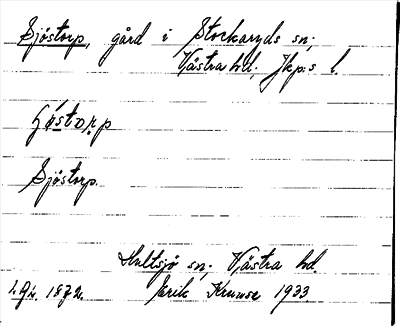 Sjöstorp, gård i Stockaryds sn;
Västra hd, Jkp:s l.
Sjöstorp.
Hultsjö sn; Västra hd
Erik Krunse 1933